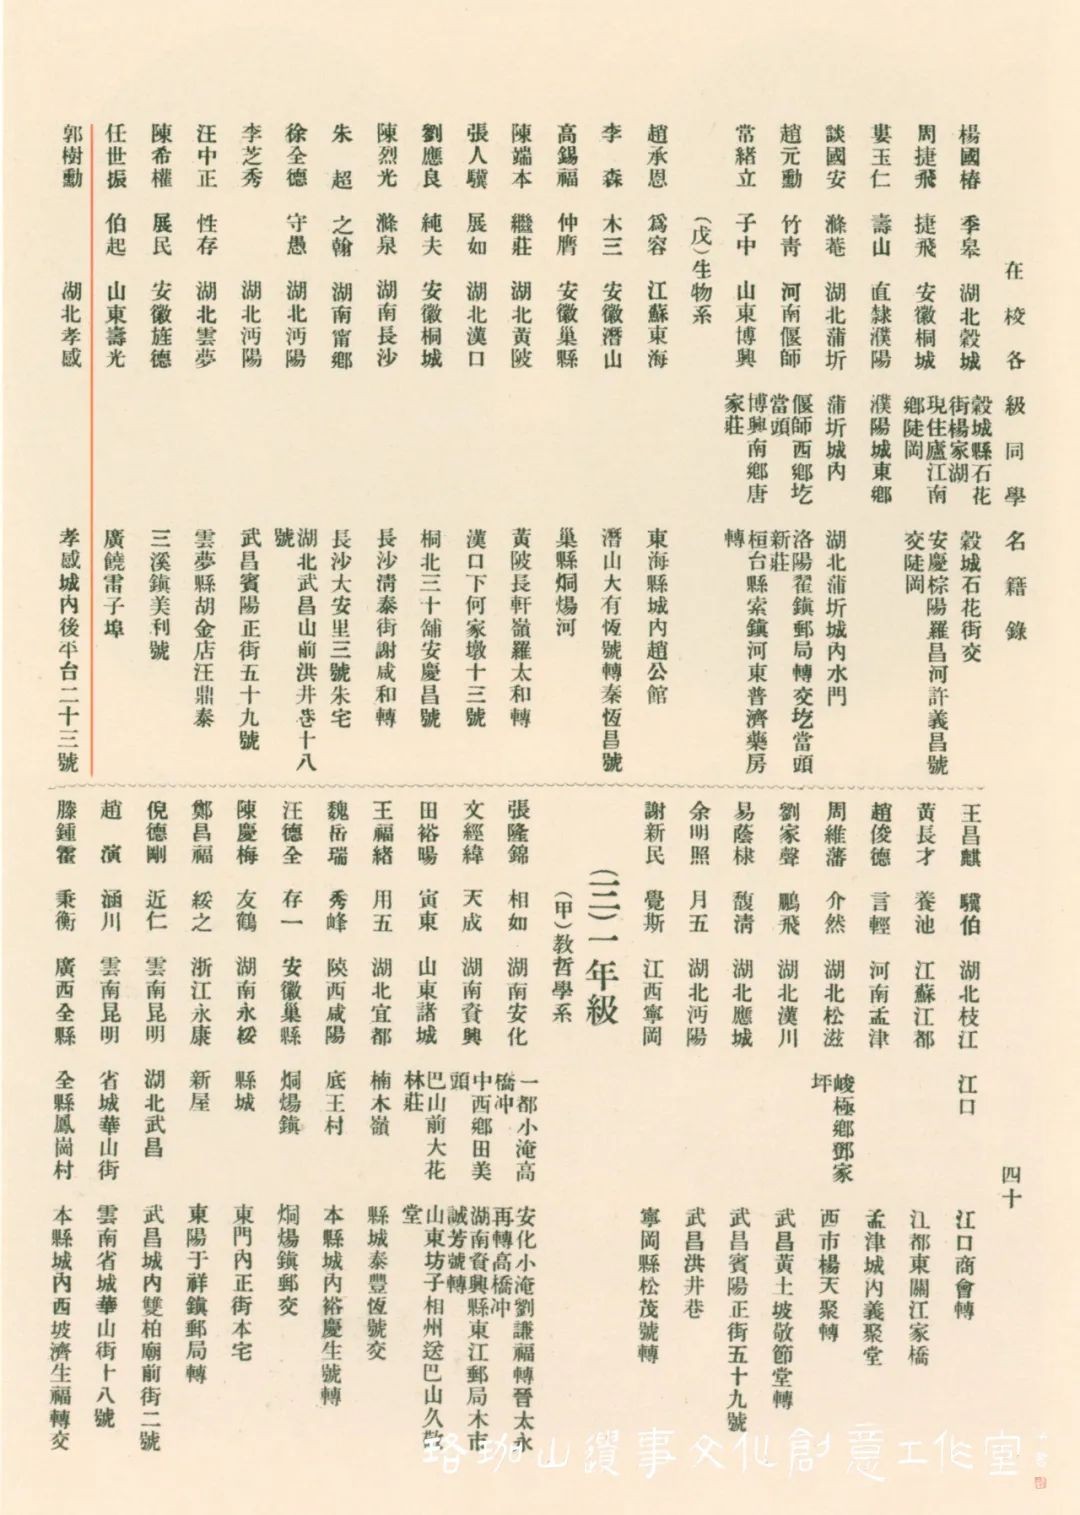 在校各級同學名籍錄
四十
楊國椿 季皋 湖北穀城 穀城縣石花街楊家湖 穀城石花街交
周捷飛 捷飛 安徽桐城 現住廬江南鄉陡岡 安慶棕陽羅昌河許義昌號交陡岡
婁玉仁 壽山 直隸濮陽 濮陽城東鄉
談國安 滌菴 湖北蒲圻 蒲圻城內 湖北蒲圻城內水門
趙元勳 竹青 河南偃師 偃師西鄉圪當頭 洛陽翟鎮郵局轉交圪當頭新莊
常緒立 子中 山東博興 博興南鄉唐家莊 桓台縣索鎮河東普濟藥房轉
(戊)生物系
趙承恩 爲容 江蘇東海 東海縣城內趙公館
李森 木三 安徽潛山 潛山大有恆號轉秦恆昌號
高錫福 仲膺 安徽巢縣 巢縣烔煬河
陳端本 繼莊 湖北黃陂 黃陂長軒嶺羅太和轉
張人驥 展如 湖北漢口 漢口下何家墩十三號
劉應良 純夫 安徽桐城 桐北三十舖安慶昌號
陳烈光 滌泉 湖南長沙 長沙清泰街謝咸和轉
朱超 之翰 湖南甯鄉 長沙大安里三號朱宅
徐全德 守愚 湖北沔陽 湖北武昌山前洪井巷十八號
李芝秀 湖北沔陽 武昌賓陽正街五十九號
汪中正 性存 湖北雲夢 雲夢縣胡金店汪鼎泰
陳希權 展民 安徽旌德 三溪鎮美利號
任世振 伯起 山東壽光 廣饒雷子埠
郭樹勳 湖北孝感 孝感城內後平台二十三號
王昌麒 驥伯 湖北枝江 江口 江口商會轉
黃長才 養池 江蘇江都 江都東關江家橋
趙俊德 言輕 河南孟津 孟津城內義聚堂
周維藩 介然 湖北松滋 峻極鄉鄧家坪 西市楊天聚轉
劉家聲 鵬飛 湖北漢川 武昌黃土坡敬節堂轉
易蔭棣 馥清 湖北應城 武昌賓陽正街五十九號
余明照 月五 湖北沔陽 武昌洪井巷
謝新民 覺斯 江西寧岡 寧岡縣松茂號轉
(三)一年級
(甲)教哲學系
張隆錦 相如 湖南安化 一都小淹高橋冲 安化小淹劉謙福轉晉太永再轉高橋冲
文經緯 天成 湖南資興 中西鄉田美頭 湖南資興縣東江郵局木市誠芳號轉
田裕暘 寅東 山東諸城 巴山前大花林莊 山東坊子相州送巴山久敬堂
王福緒 用五 湖北宜都 楠木嶺 縣城泰豐恆號交
魏岳瑞 秀峰 陝西咸陽 底王村 本縣城內裕慶生號轉
汪德全 存一 安徽巢縣 烔煬鎮 烔煬鎮郵交
陳慶梅 友鶴 湖南永綏 縣城 東門內正街本宅
鄭昌福 綏之 浙江永康 新屋 東陽于祥鎮郵局轉
倪德剛 近仁 雲南昆明 湖北武昌 武昌城內雙柏廟前街二號
趙演 涵川 雲南昆明 省城華山街 雲南省城華山街十八號
滕鍾霍 秉衡 廣西全縣 全縣鳳崗村 本縣城內西坡濟生福轉交
珞珈山鑽事文化創意工作室